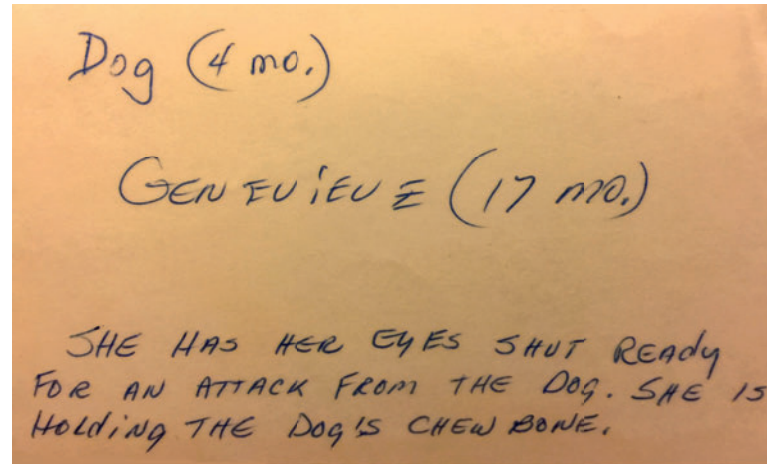 Dog (4 mo.)
GENEVIEVE (17 mo.)
SHE HAS HER EYES SHUT READY
FOR AN ATTACK FROM THE DOG. SHE IS
HOLDING THE DOG'S CHEW BONE.